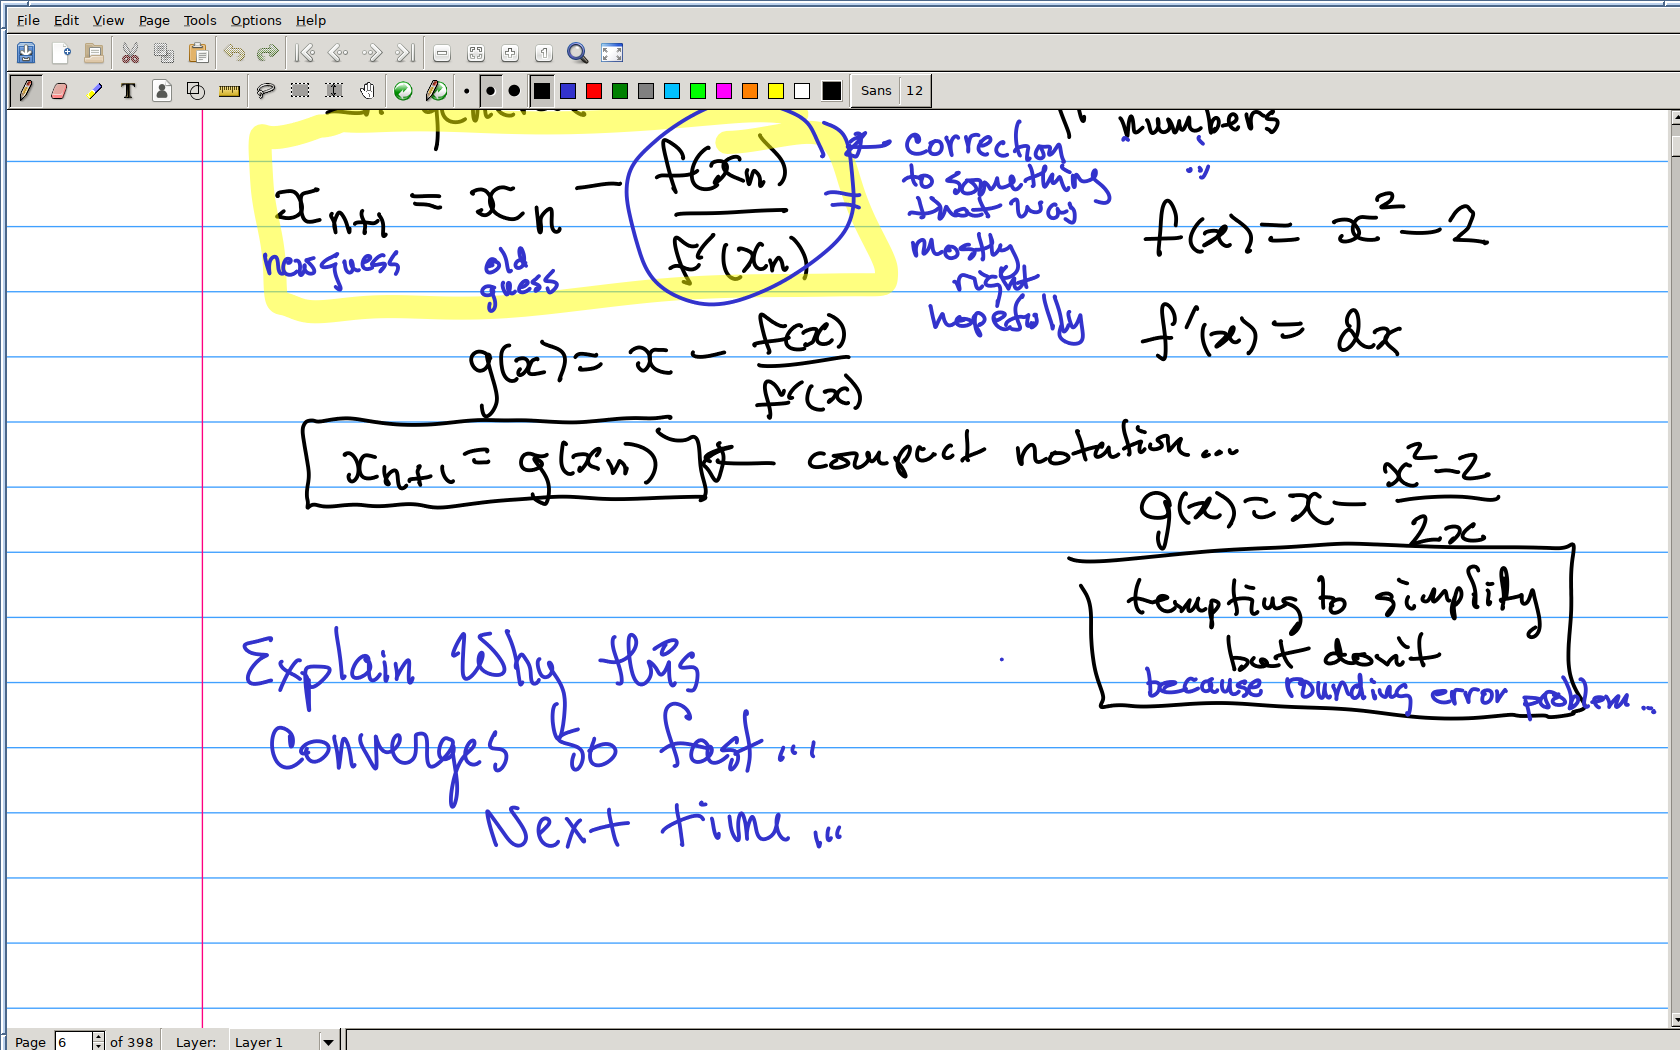 File Edit View Page Tools Options Help
Sans 12
In general
numbers
x_{n+1} = x_n - f(x_n) / f'(x_n)
new guess
old
guess
correction
to something
that was
mostly
right
hopefully
f(x) = x^2 - 2
f'(x) = 2x
g(x) = x - f(x) / f'(x)
x_{n+1} = g(x_n) ← compact notation...
g(x) = x - (x^2 - 2) / 2x
tempting to simplify
but don't
because rounding error problem...
Explain Why this
Converges so fast...
Next time...
Page 6 of 398 Layer: Layer 1